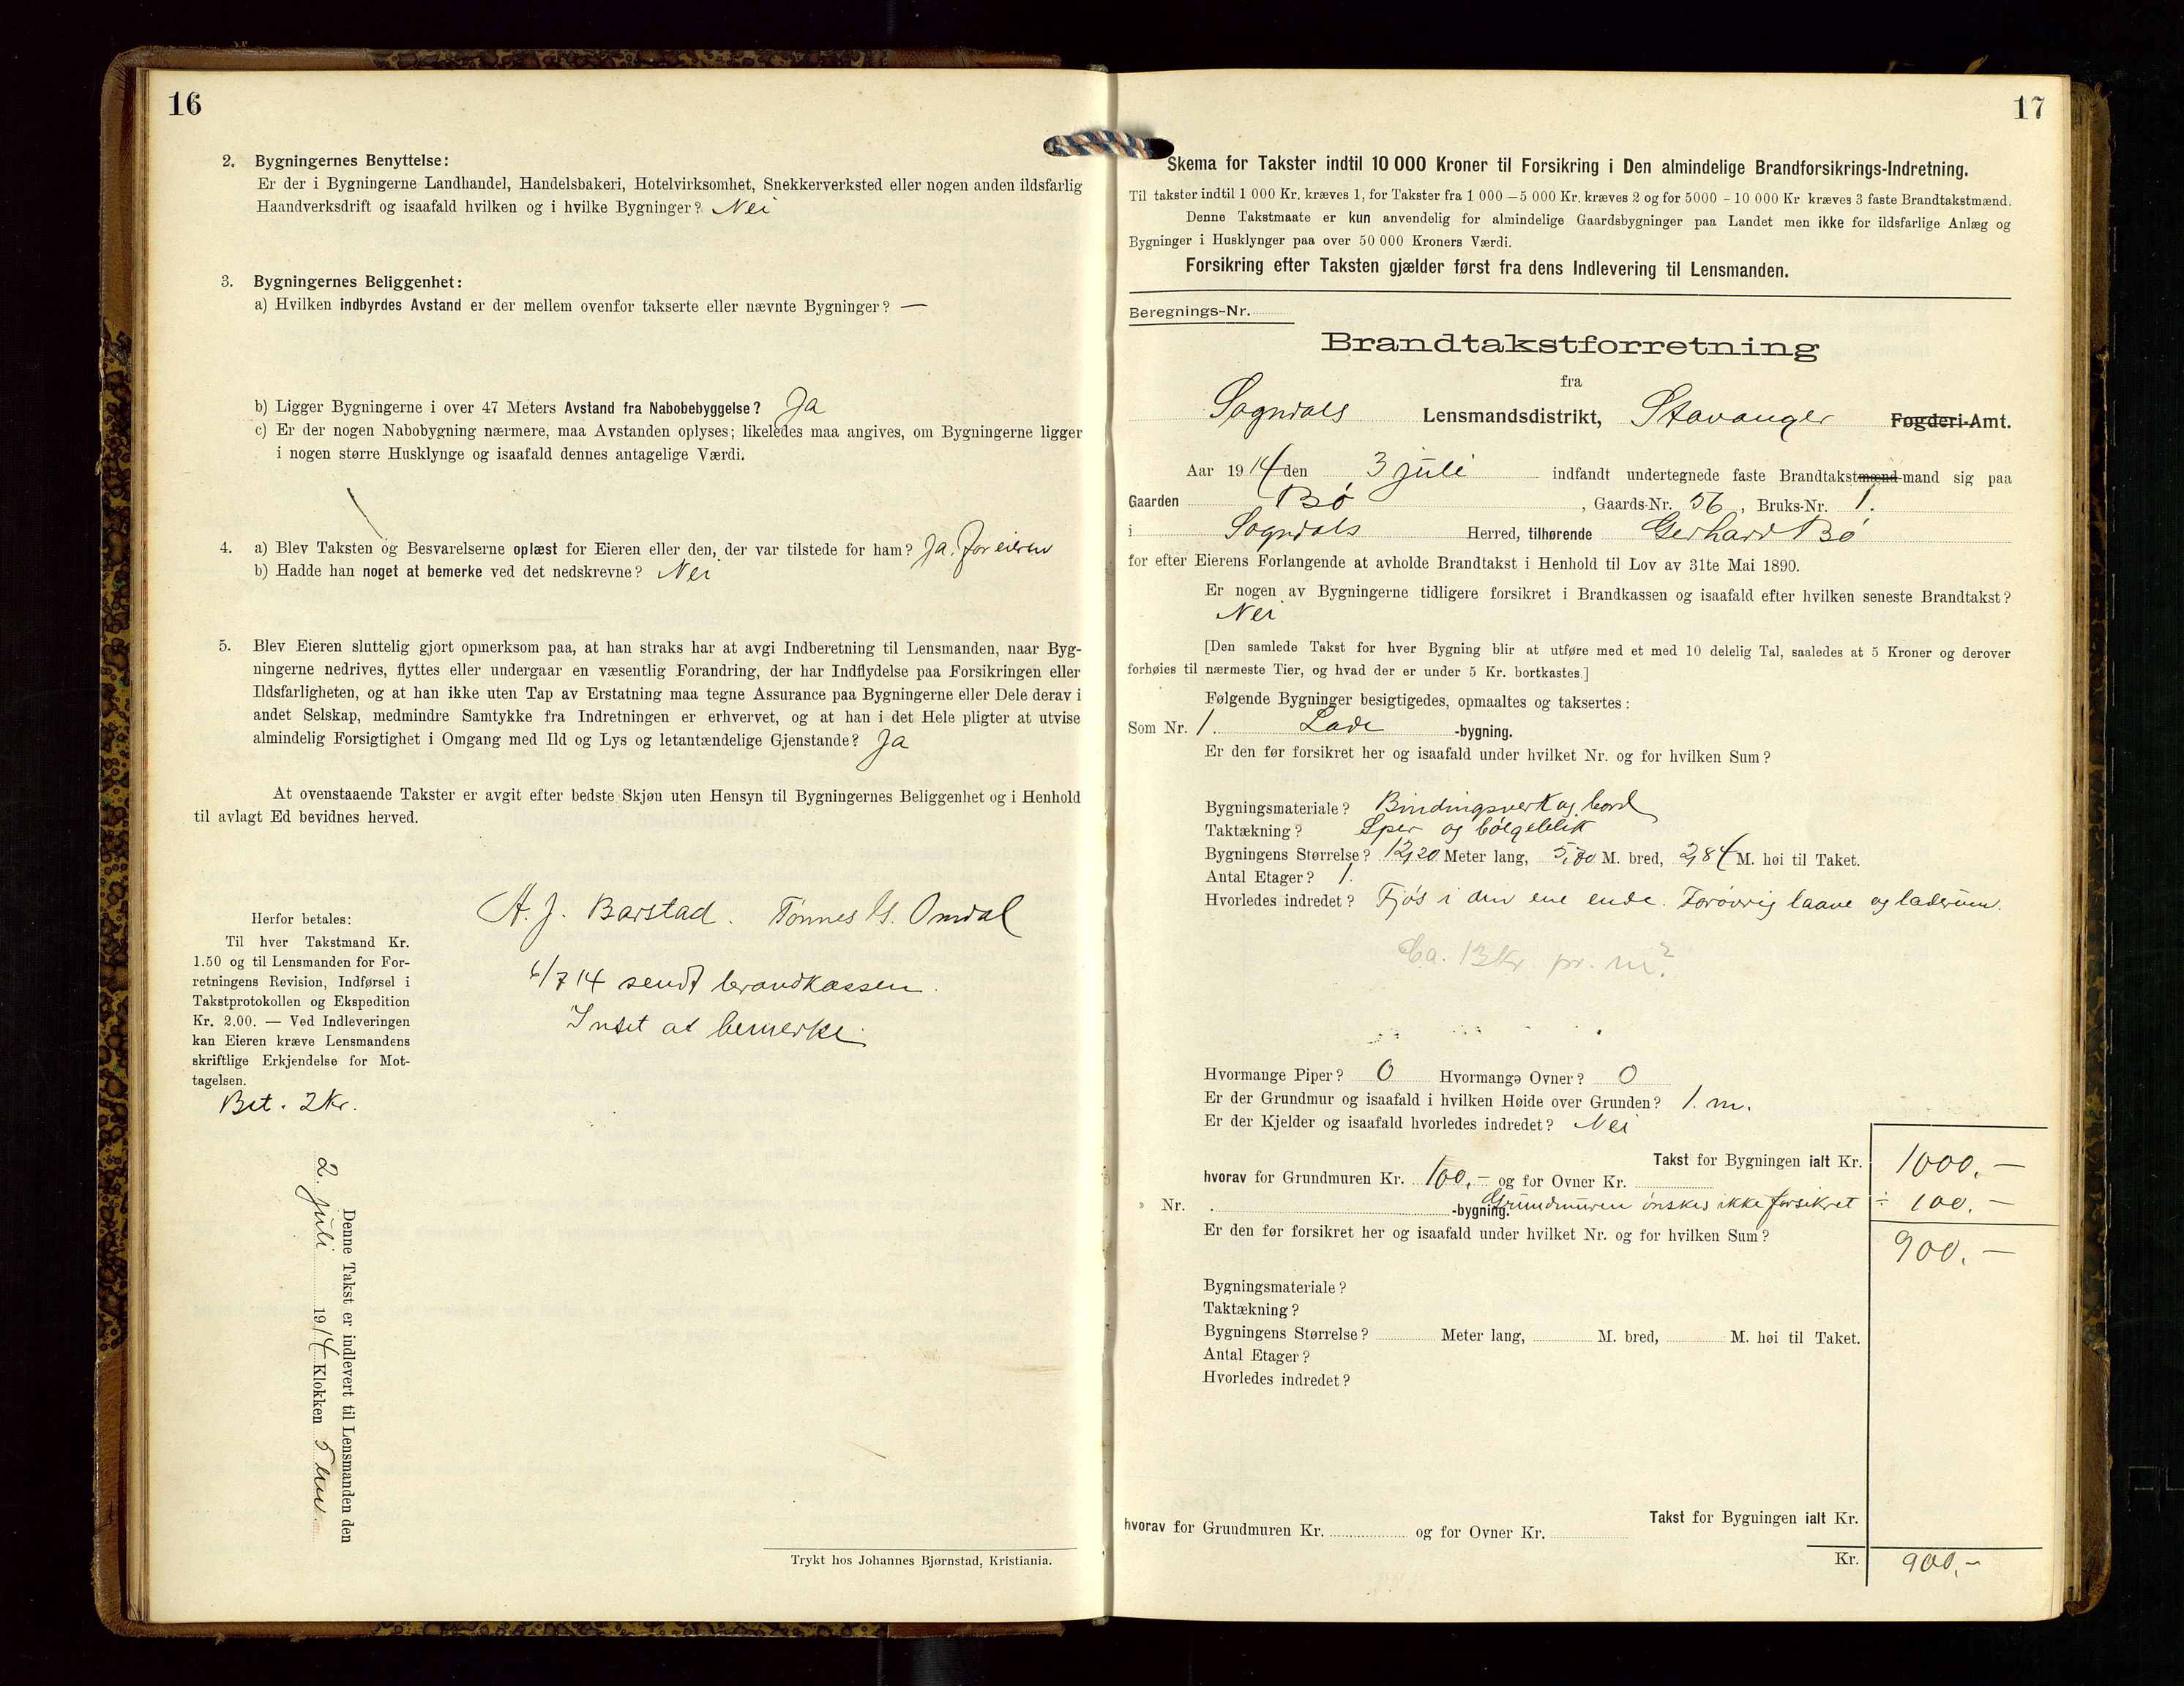 16
2. Bygningernes Benyttelse:
Er der i Bygningerne Landhandel, Handelsbakeri, Hotelvirksomhet, Snekkerverksted eller nogen anden ildsfarlig
Haandverksdrift og isaafald hvilken og i hvilke Bygninger? Nei
3. Bygningernes Beliggenhet:
a) Hvilken indbyrdes Avstand er der mellem ovenfor takserte eller nævnte Bygninger? —
b) Ligger Bygningerne i over 47 Meters Avstand fra Nabobebyggelse? Ja
c) Er der nogen Nabobygning nærmere, maa Avstanden oplyses; likeledes maa angives, om Bygningerne ligger
i nogen større Husklynge og isaafald dennes antagelige Værdi.
4. a) Blev Taksten og Besvarelserne oplæst for Eieren eller den, der var tilstede for ham? Ja. for eieren
b) Hadde han noget at bemerke ved det nedskrevne? Nei
5. Blev Eieren sluttelig gjort opmerksom paa, at han straks har at avgi Indberetning til Lensmanden, naar Byg-
ningerne nedrives, flyttes eller undergaar en væsentlig Forandring, der har Indflydelse paa Forsikringen eller
Ildsfarligheten, og at han ikke uten Tap av Erstatning maa tegne Assurance paa Bygningerne eller Dele derav i
andet Selskap, medmindre Samtykke fra Indretningen er erhvervet, og at han i det Hele pligter at utvise
almindelig Forsigtighet i Omgang med Ild og Lys og letantændelige Gjenstande? Ja
At ovenstaaende Takster er avgit efter bedste Skjøn uten Hensyn til Bygningernes Beliggenhet og i Henhold
til avlagt Ed bevidnes herved.
A. J. Barstad. Tønnes G. Omdal
6/7 14 sendt brandkassen.
Intet at bemerke.
Herfor betales:
Til hver Takstmand Kr.
1.50 og til Lensmanden for For-
retningens Revision, Indførsel i
Takstprotokollen og Ekspedition
Kr. 2.00. — Ved Indleveringen
kan Eieren kræve Lensmandens
skriftlige Erkjendelse for Mot-
tagelsen.
Bet. 2 Kr.
Denne Takst er indlevert til Lensmanden den
2. juli 1914 Klokken 5 em.
Trykt hos Johannes Bjørnstad, Kristiania.
17
Skema for Takster indtil 10 000 Kroner til Forsikring i Den almindelige Brandforsikrings-Indretning.
Til takster indtil 1 000 Kr. kræves 1, for Takster fra 1 000 — 5 000 Kr. kræves 2 og for 5000 - 10 000 Kr kræves 3 faste Brandtakstmænd.
Denne Takstmaate er kun anvendelig for almindelige Gaardsbygninger paa Landet men ikke for ildsfarlige Anlæg og
Bygninger i Husklynger paa over 50 000 Kroners Værdi.
Forsikring efter Taksten gjælder først fra dens Indlevering til Lensmanden.
Beregnings-Nr.
Brandtakstforretning
fra
Sogndals Lensmandsdistrikt, Stavanger Fogderi-Amt.
Aar 1914 den 3 juli indfandt undertegnede faste Brandtakstmænd-mand sig paa
Gaarden Bø, Gaards-Nr. 56, Bruks-Nr. 1.
i Sogndals Herred, tilhørende Gerhard Bø
for efter Eierens Forlangende at avholde Brandtakst i Henhold til Lov av 31te Mai 1890.
Er nogen av Bygningerne tidligere forsikret i Brandkassen og isaafald efter hvilken seneste Brandtakst?
Nei
[Den samlede Takst for hver Bygning blir at utføre med et med 10 delelig Tal, saaledes at 5 Kroner og derover
forhøies til nærmeste Tier, og hvad der er under 5 Kr. bortkastes.]
Følgende Bygninger besigtigedes, opmaaltes og taksertes:
Som Nr. 1. Lade -bygning.
Er den før forsikret her og isaafald under hvilket Nr. og for hvilken Sum?
Bygningsmateriale? Bindingsverk og bord
Taktækning? Sper og bølgeblik
Bygningens Størrelse? 12,20 Meter lang, 5,80 M. bred, 2,84 M. høi til Taket.
Antal Etager? 1.
Hvorledes indredet? Fjøs i den ene ende. Forøvrig laave og laderum.
Ca. 13 Kr. pr. m²
Hvormange Piper? 0 Hvormange Ovner? 0
Er der Grundmur og isaafald i hvilken Høide over Grunden? 1. m.
Er der Kjelder og isaafald hvorledes indredet? Nei
Takst for Bygningen ialt Kr. 1000,—
hvorav for Grundmuren Kr. 100,- og for Ovner Kr.
Grundmuren ønskes ikke forsikret ÷ 100,—
» Nr. -bygning.
Er den før forsikret her og isaafald under hvilket Nr. og for hvilken Sum?
900,—
Bygningsmateriale?
Taktækning?
Bygningens Størrelse? Meter lang, M. bred, M. høi til Taket.
Antal Etager?
Hvorledes indredet?
Takst for Bygningen ialt Kr.
hvorav for Grundmuren Kr. og for Ovner Kr.
Kr. 900,-